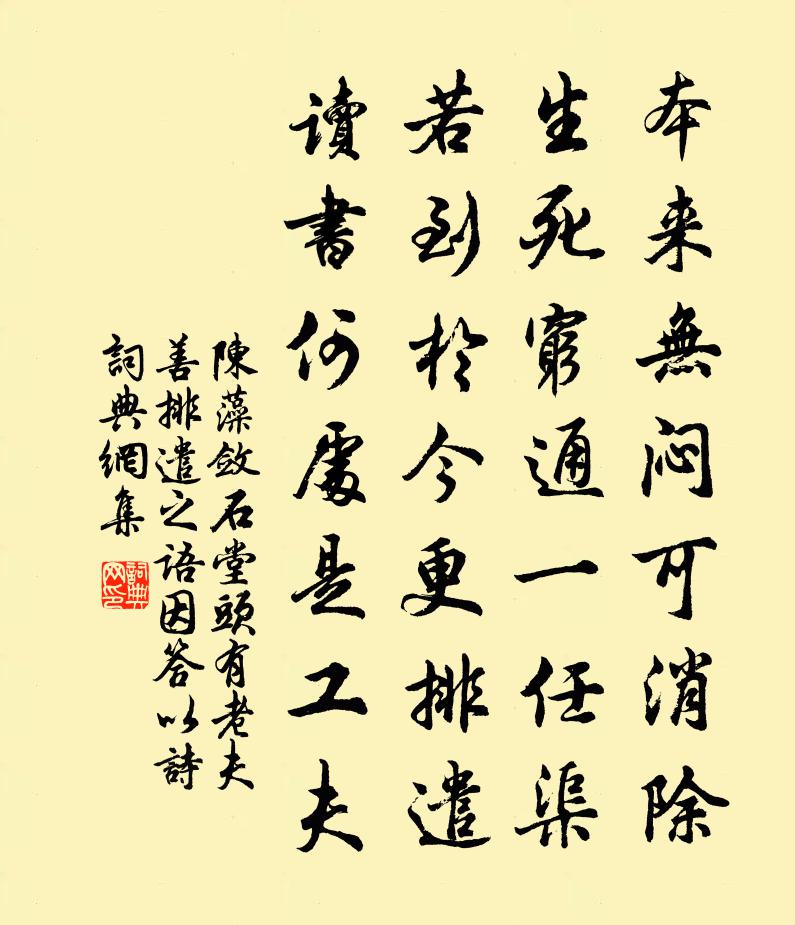 本来無悶可消除
生死窮通一任渠
若到於今更排遣
讀書何處是工夫
陳藻斂石堂頭有老夫
善排遣之語因答以詩
詞典網集
詞典
网印